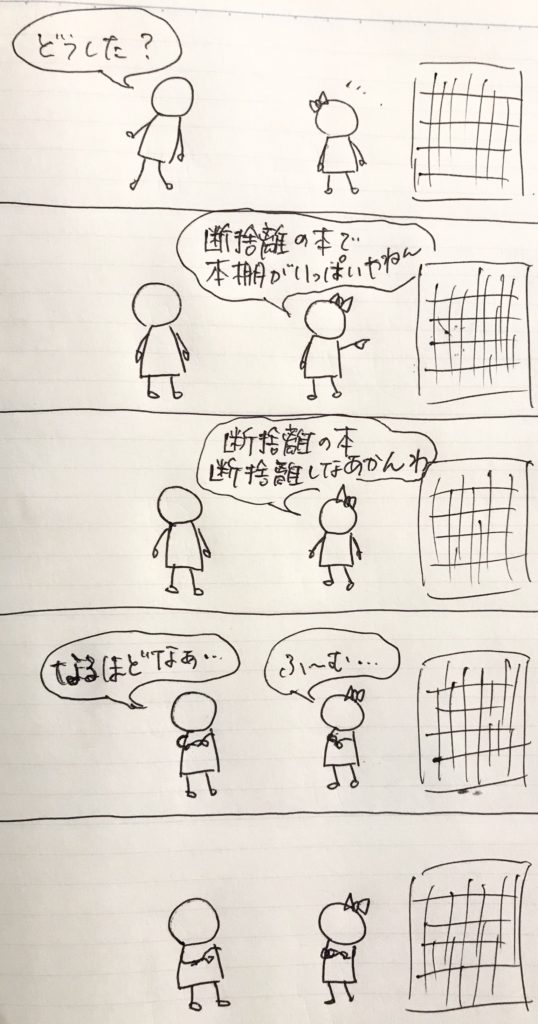 どうした?
断捨離の本で
本棚がいっぱいやねん
断捨離の本
断捨離しなあかんわ
なるほどなぁ…
ふ〜む…